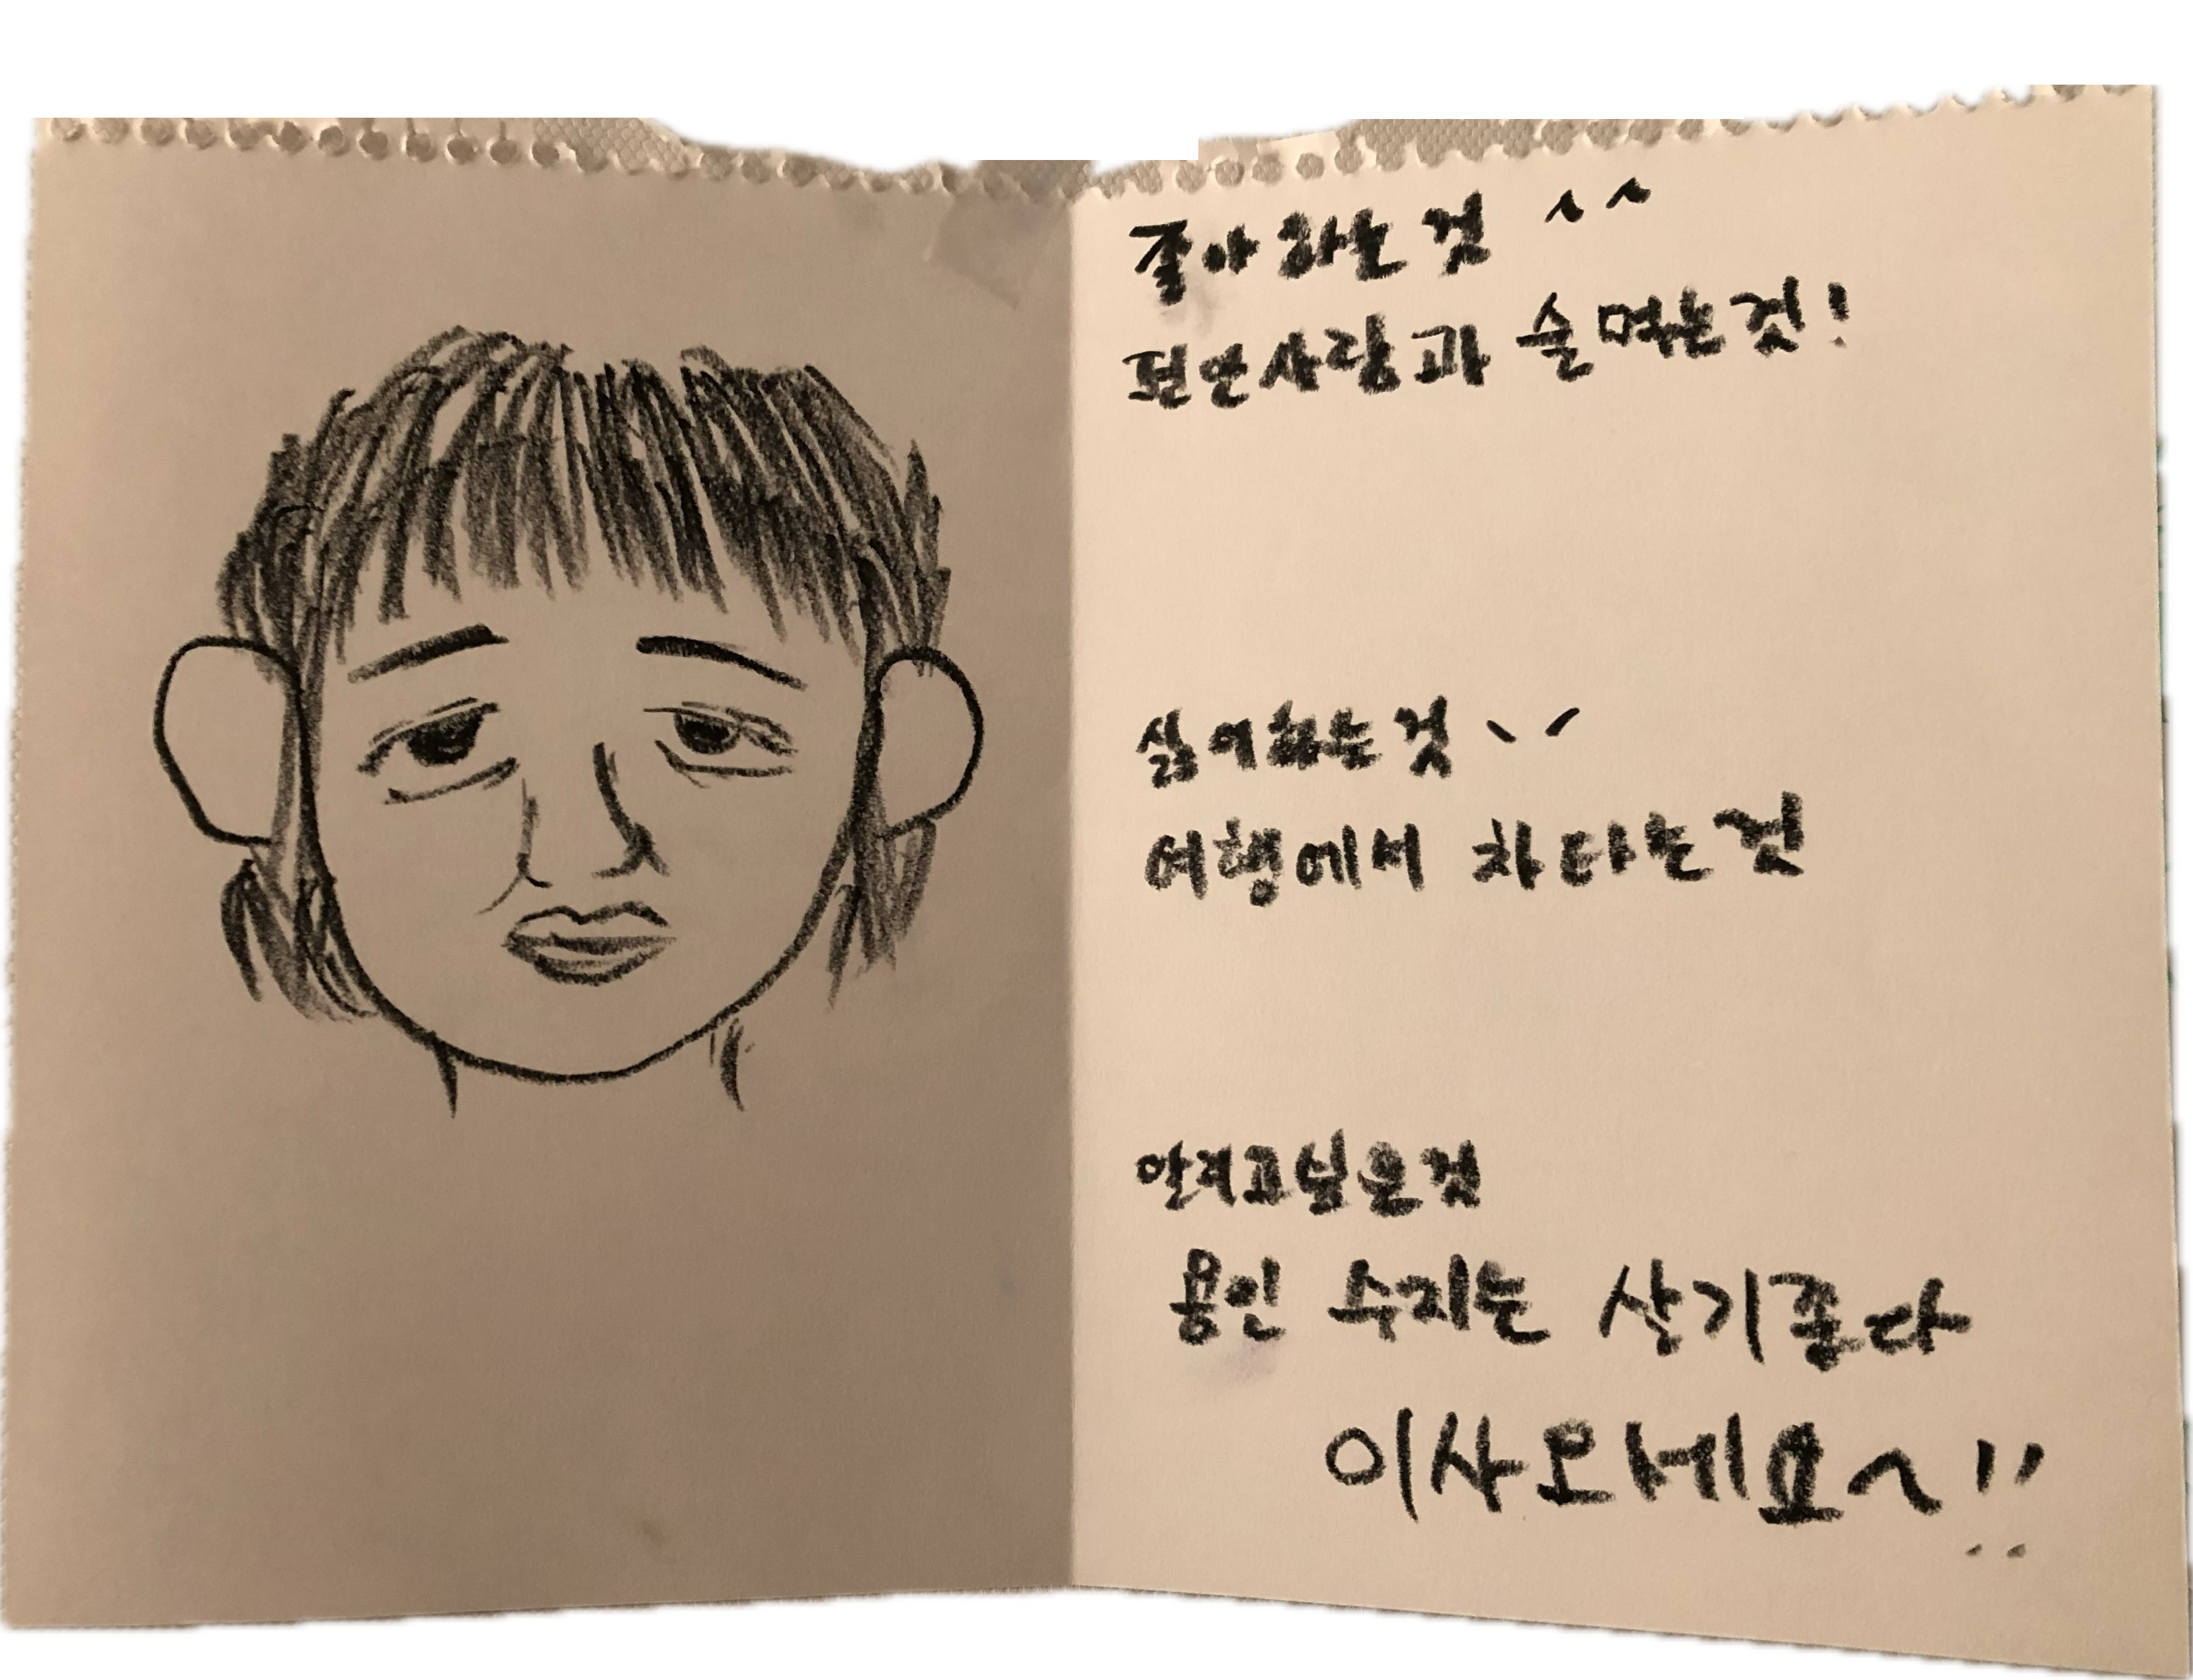 좋아하는것 ^^
편안사람과 술먹는것!
싫어하는것
여행에서 차타는것
알리고싶은것
용인 수지는 살기좋다
이사오세요~!!